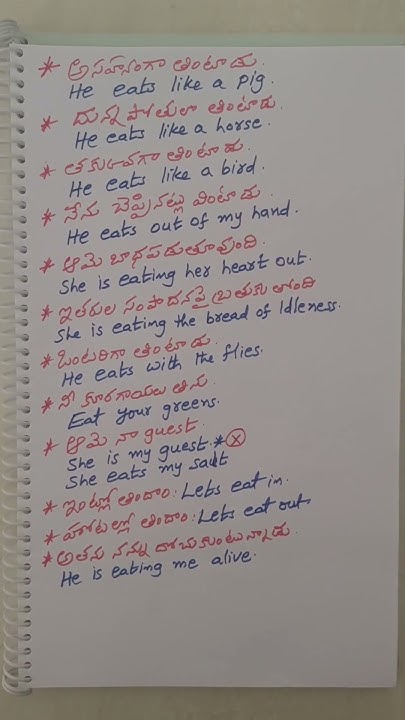 * అసహ్యంగా తింటాడు.
He eats like a pig.
* దున్నపోతులా తింటాడు.
He eats like a horse.
* తక్కువగా తింటాడు.
He eats like a bird.
* నేను చెప్పినట్లు వింటాడు.
He eats out of my hand.
* ఆమె బాధపడుతూవుంది.
She is eating her heart out.
* ఇతరుల సంపాదనపై బ్రతుకుతోంది
She is eating the bread of Idleness.
* ఒంటరిగా తింటాడు.
He eats with the flies.
* నీ కూరగాయలు తిను.
Eat your greens.
* ఆమె నా guest.
She is my guest.* ⓧ
She eats my salt
* ఇంట్లో తిందాం: Lets eat in.
* హోటల్లో తిందాం: Lets eat out.
* అతను నన్ను దోచుకుంటున్నాడు.
He is eating me alive.